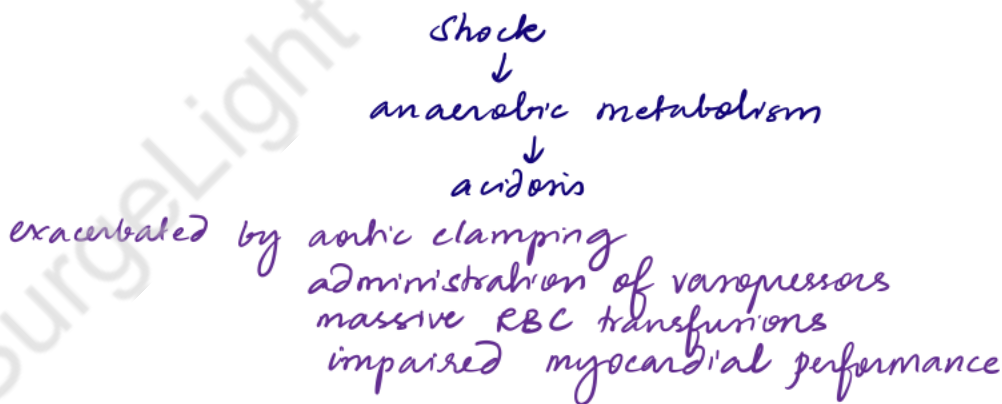 Shock
↓
anaerobic metabolism
↓
acidosis
exacerbated by aortic clamping
administration of vasopressors
massive RBC transfusions
impaired myocardial performance
SurgeLight